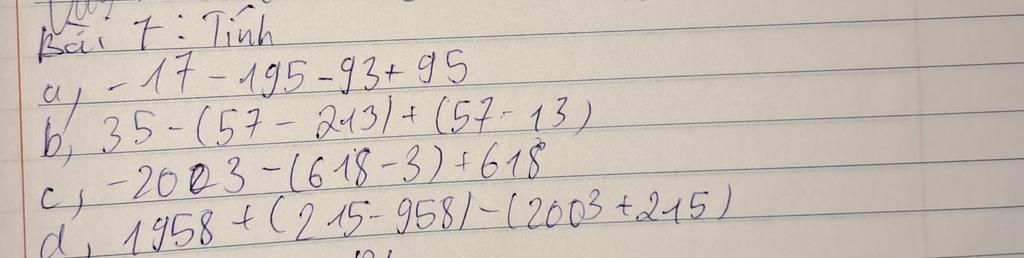 Bài 7 : Tính
a, -17 - 195 - 93 + 95
b, 35 - (57 - 213) + (57 - 13)
c, -2003 - (618 - 3) + 618
d, 1958 + (215 - 958) - (2003 + 215)